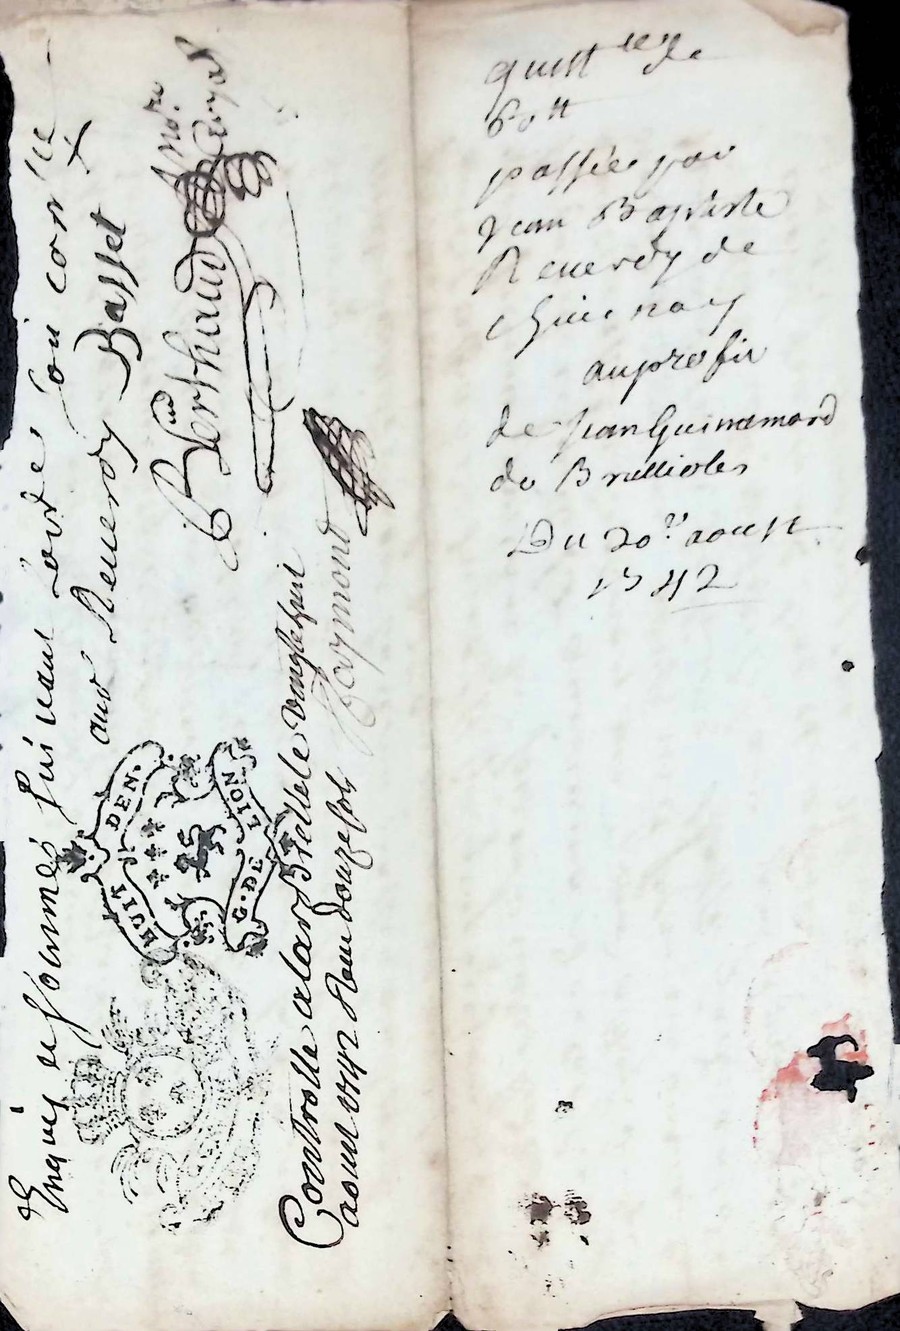 Enquis et sommés suivant l'ord.e soú con.lle
aud Reverdy Basset
Berthaud No.re Royal
HUIT DEN.
G. DE LION
Controllé a larbrelle le vingt
aoust 1742 Reçu douze sols Raymond
quittce de
passée par
Jean Baptiste
Reverdy de
chivenay
au profit
de Jean Guinamard
de Brullioles
Du 20.e aoust
1742